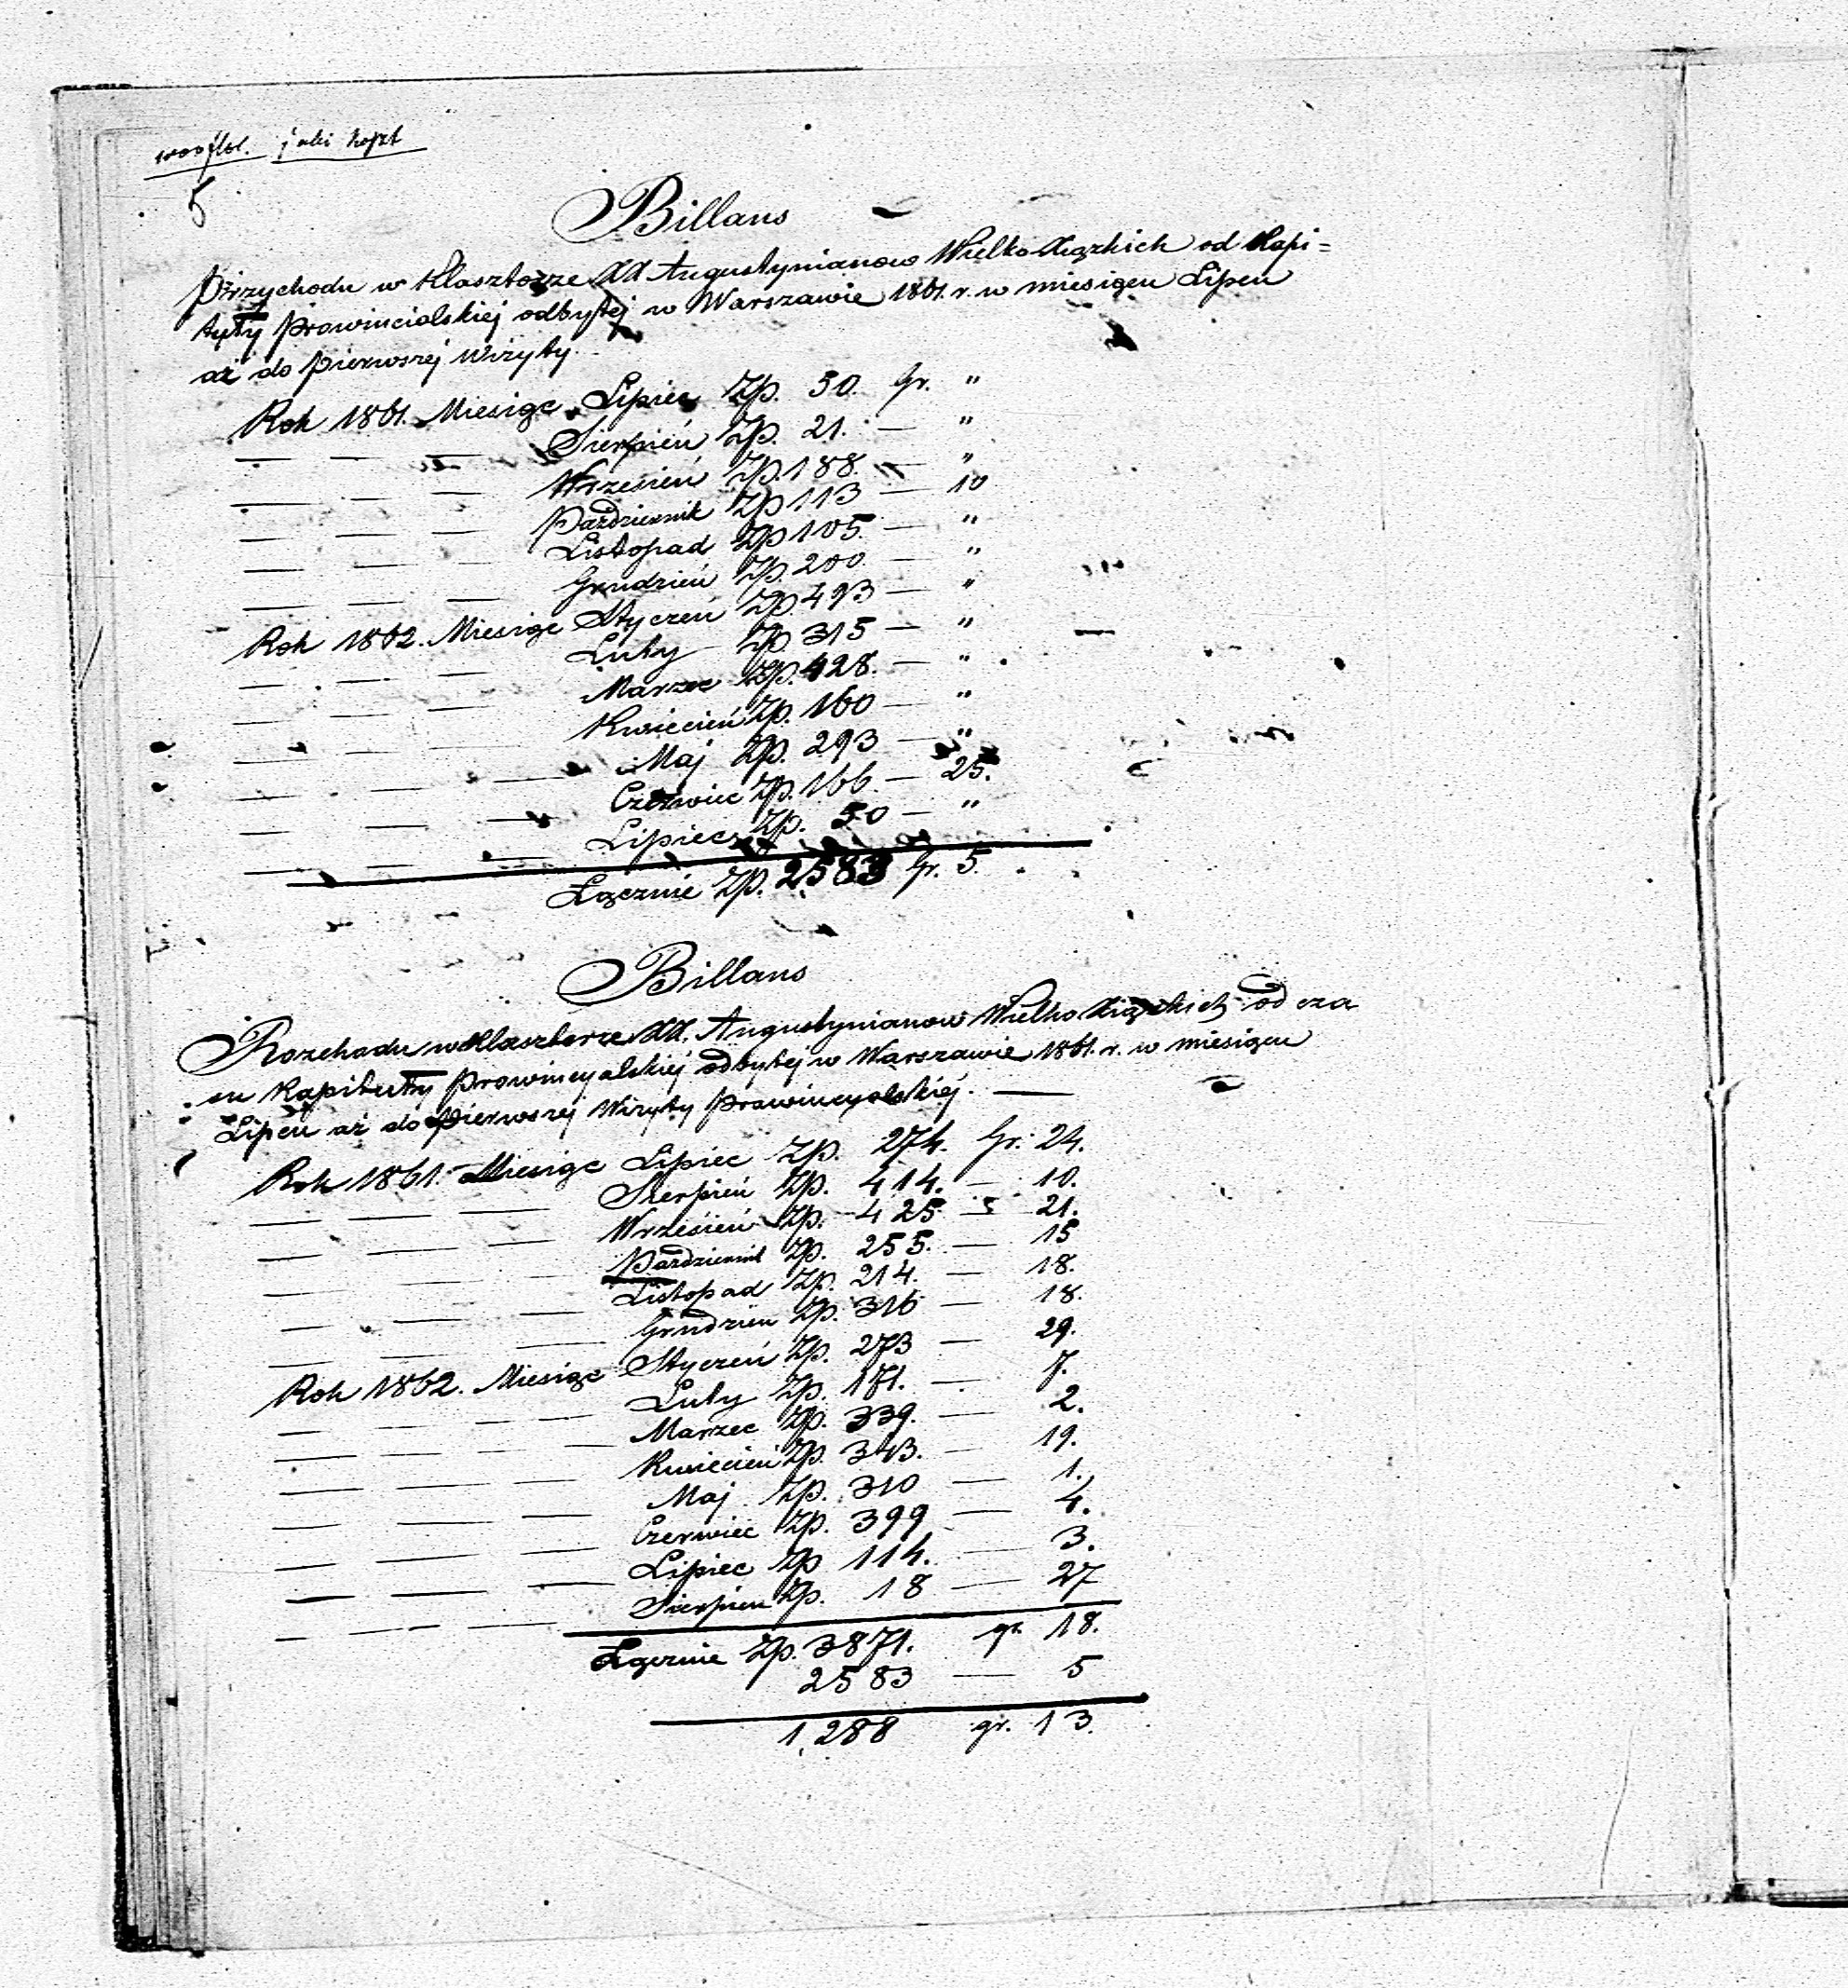 5
Billans
Przychodu w Klasztorze XX Augustynianow Wielko Xiązkich od Kapi=
tuły Prowincialskiej odbytej w Warszawie 1861. r. w miesiącu Lipcu
aż do pierwszej Wizyty.
Rok 1861. Miesiąc Lipiec Zp. 50. Gr. "
— — — Sierpień Zp. 21. — "
— — — Wrzesień Zp. 188. — "
— — — Pazdziernik Zp 113 — 10
— — — Listopad Zp 105. — "
— — — Grudzień Zp. 200. — "
Rok 1862. Miesiąc Styczeń Zp. 493 — "
— — — Luty Zp. 315 — "
— — — Marzec Zp. 428. — "
— — — Kwiecień Zp. 160 — "
— — — Maj Zp. 293 — "
— — — Czerwiec Zp. 166. — 25.
— — — Lipiec Zp. 50 — "
Łącznie Zp. 2583 Gr. 5.
Billans
Rozchodu w Klasztorze XX. Augustynianow Wielko Xiązkich od cza
su Kapituły Prowincyalskiej odbytej w Warszawie 1861. r. w miesiącu
Lipcu aż do pierwszej Wizyty Prowincyalskiej. —
Rok 1861. Miesiąc Lipiec Zp. 274. Gr. 24.
— — — Sierpień Zp. 414. — 10.
— — — Wrzesień Zp. 425 — 21.
— — — Pazdziernik Zp. 255. — 15
— — — Listopad Zp. 214. — 18.
— — — Grudzień Zp. 316 — 18.
Rok 1862. Miesiąc Styczeń Zp. 273 — 29.
— — — Luty Zp. 171. — 7.
— — — Marzec Zp. 339. — 2.
— — — Kwiecień Zp. 343. — 19.
— — — Maj Zp. 310 — 1.
— — — Czerwiec Zp. 399 — 4.
— — — Lipiec Zp 114. — 3.
— — — Sierpień Zp. 18 — 27
Łącznie Zp. 3871. gr. 18.
2583 — 5
1,288 gr. 13.